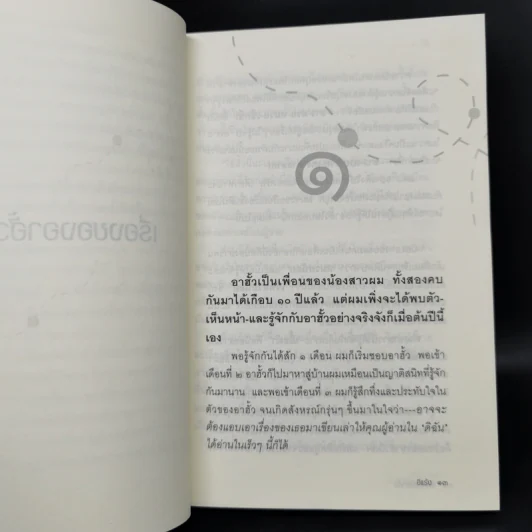 ๑
อาฮั้วเป็นเพื่อนของน้องสาวผม ทั้งสองคบ
กันมาได้เกือบ ๑๐ ปีแล้ว แต่ผมเพิ่งจะได้พบตัว-
เห็นหน้า-และรู้จักกับอาฮั้วอย่างจริงจังก็เมื่อต้นปีนี้
เอง
พอรู้จักกันได้สัก ๑ เดือน ผมก็เริ่มชอบอาฮั้ว พอเข้า
เดือนที่ ๒ อาฮั้วก็ไปมาหาสู่บ้านผมเหมือนเป็นญาติสนิทที่รู้จัก
กันมานาน และพอเข้าเดือนที่ ๓ ผมก็รู้สึกทึ่งและประทับใจใน
ตัวของอาฮั้ว จนเกิดสังหรณ์กรุ่นๆ ขึ้นมาในใจว่า---อาจจะ
ต้องแอบเอาเรื่องของเธอมาเขียนเล่าให้คุณผู้อ่านใน 'ดิฉัน'
ได้อ่านในเร็วๆ นี้ก็ได้
๑๓